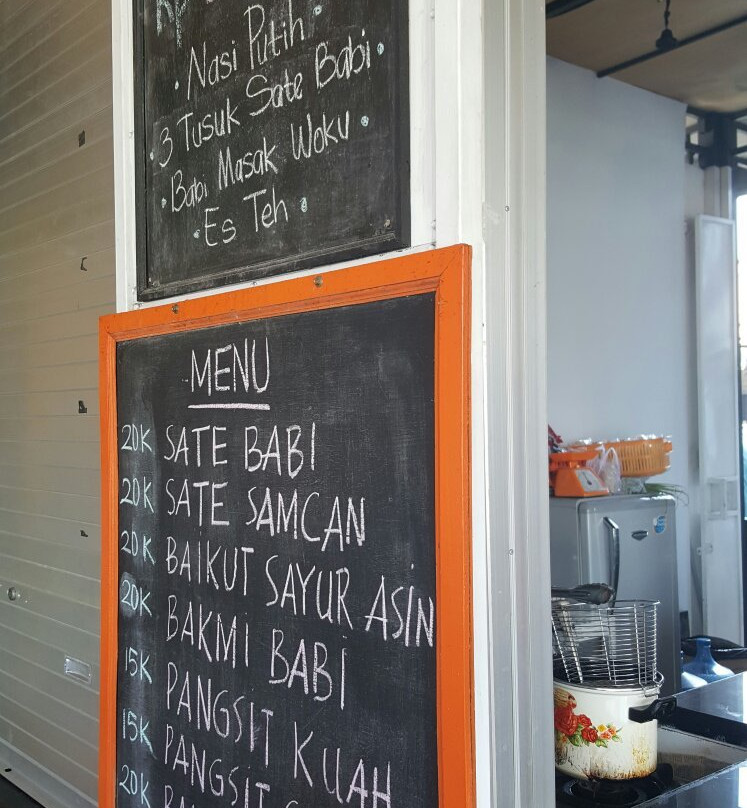 Nasi Putih
3 Tusuk Sate Babi
Babi Masak Woku
Es Teh
MENU
20K SATE BABI
20K SATE SAMCAN
20K BAIKUT SAYUR ASIN
20K BAKMI BABI
15K PANGSIT KUAH
15K PANGSIT
20K